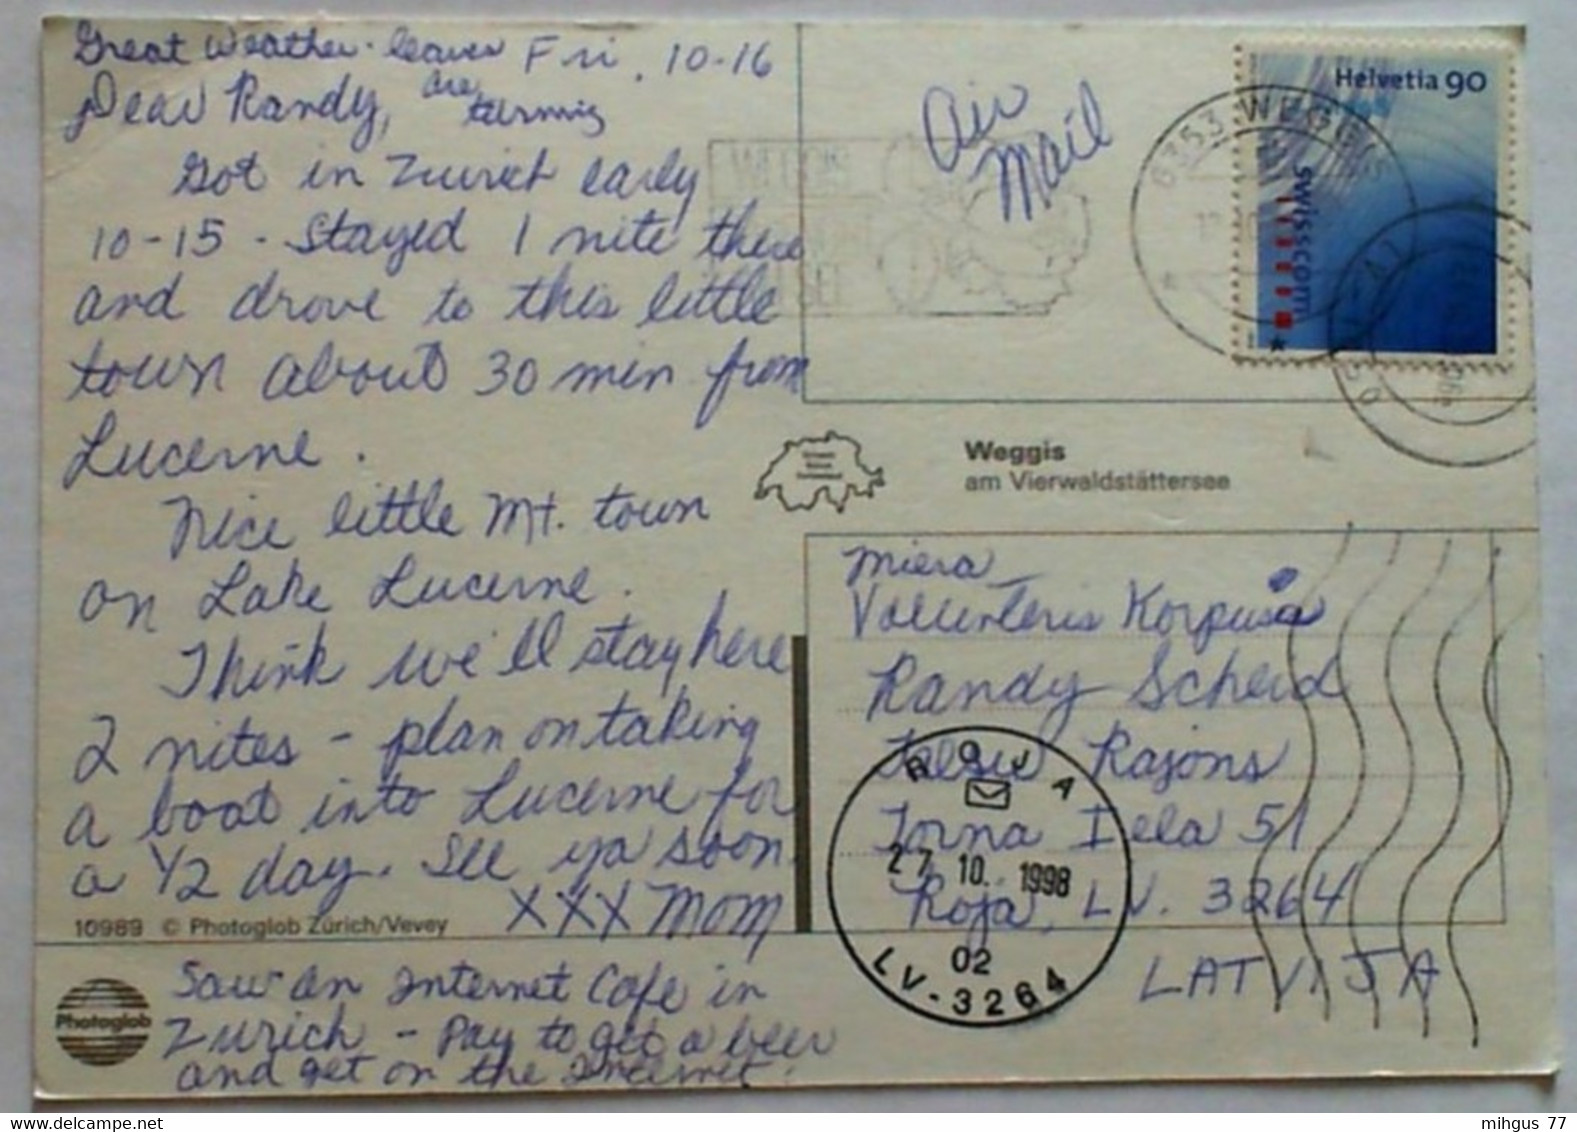 Great Weather - leaves
are
turning
Fri, 10-16
Dear Randy,
Got in Zurich early
10-15 - Stayed 1 nite there
and drove to this little
town about 30 min from
Lucerne.
Nice little Mt. town
on Lake Lucerne.
Think we'll stay here
2 nites - plan on taking
a boat into Lucerne for
a 1/2 day. See ya soon
XXX Mom
10989 © Photoglob Zürich/Vevey
Photoglob
Saw an Internet Cafe in
Zurich - Pay to get a beer
and get on the Internet!
Air
Mail
Helvetia 90
swisscom
6353 WEGGIS
WEGGIS
SEE
Weggis
am Vierwaldstättersee
Miera
Volunteris Korpusa
Randy Scheid
Talsu Rajons
Torna Iela 51
Roja, LV. 3264
LATVIJA
ROJA
27 10. 1998
02
LV-3264
mihgus 77